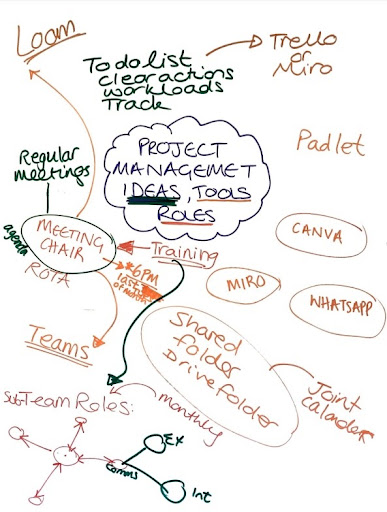 Loom
To do list
clear actions
workloads
Track
Trello
or
Miro
PROJECT
MANAGEMET
IDEAS, TOOLS
ROLES
Padlet
Regular
meetings
agenda
MEETING
CHAIR
ROTA
Training
*6PM
last
of month
CANVA
MIRO
WHATSAPP
Teams
Shared
folder
Drive folder
Joint
calander
Sub Team Roles:
monthly
Comms
Ex
Int